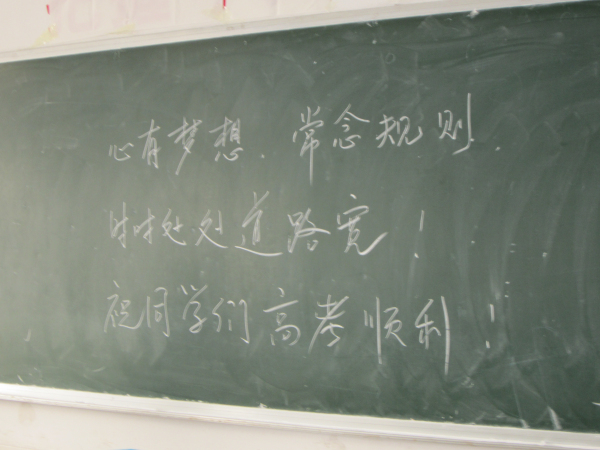 心有梦想.常念规则.
时时处处道路宽!
祝同学们高考顺利!